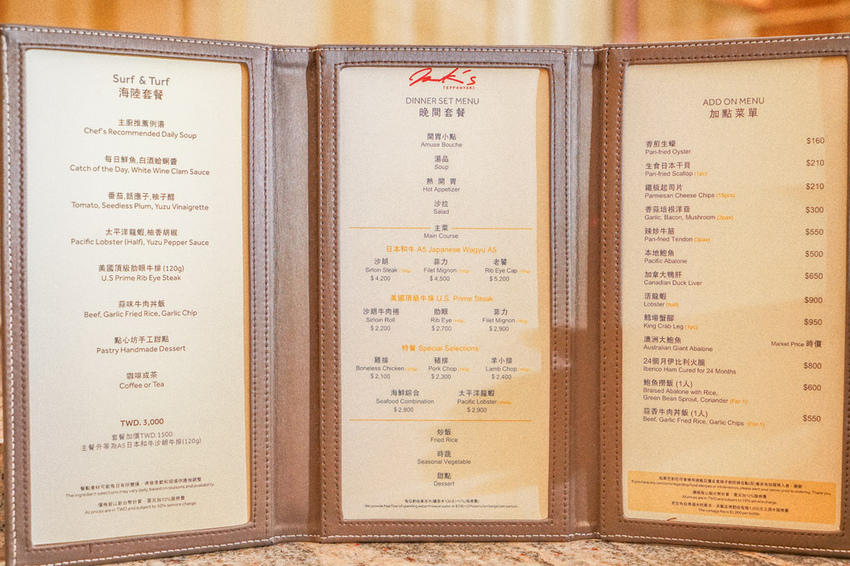 Surf & Turf
海陸套餐
主廚推薦例湯
Chef's Recommended Daily Soup
每日鮮魚,白酒蛤蜊醬
Catch of the Day, White Wine Clam Sauce
番茄,話應子,柚子醋
Tomato, Seedless Plum, Yuzu Vinaigrette
太平洋龍蝦,柚香胡椒
Pacific Lobster (Half), Yuzu Pepper Sauce
美國頂級肋眼牛排 (120g)
U.S Prime Rib Eye Steak
蒜味牛肉丼飯
Beef, Garlic Fried Rice, Garlic Chip
點心坊手工甜點
Pastry Handmade Dessert
咖啡或茶
Coffee or Tea
TWD. 3,000
套餐加價TWD.1500
主餐升等為A5日本和牛沙朗牛排(120g)
The ingredient selections may vary daily, based on seasons and availability.
All prices are in TWD and subject to 10% service charge.
Jack's
TEPPANYAKI
DINNER SET MENU
晚間套餐
開胃小點
Amuse Bouche
湯品
Soup
熱 開 胃
Hot Appetizer
沙拉
Salad
主菜
Main Course
日本和牛 A5 Japanese Wagyu A5
沙朗 菲力 老饕
Sirloin Steak Filet Mignon Rib Eye Cap
$ 4,200 $ 4,500 $ 5,200
美國頂級牛排 U.S. Prime Steak
沙朗牛肉捲 肋眼 菲力
Sirloin Roll Rib Eye Filet Mignon
$ 2,200 $ 2,700 $ 2,900
特餐 Special Selections
雞排 豬排 羊小排
Boneless Chicken Pork Chop Lamb Chop
$ 2,100 $ 2,300 $ 2,400
海鮮綜合 太平洋龍蝦
Seafood Combination Pacific Lobster
$ 2,800 $ 2,900
炒飯
Fried Rice
時蔬
Seasonal Vegetable
甜點
Dessert
ADD ON MENU
加點菜單
香煎生蠔 $160
Pan-fried Oyster
生食日本干貝 $210
Pan-fried Scallop (1pc)
鐵板起司片 $210
Parmesan Cheese Chips (15pcs)
香蒜培根洋菇 $300
Garlic, Bacon, Mushroom
辣炒牛筋 $550
Pan-fried Tendon
本地鮑魚 $500
Pacific Abalone
加拿大鴨肝 $650
Canadian Duck Liver
活龍蝦 $900
Lobster (Half)
鱈場蟹腳 $950
King Crab Leg (1pc)
澳洲大鮑魚 Market Price 時價
Australian Giant Abalone
24個月伊比利火腿 $800
Iberico Ham Cured for 24 Months
鮑魚撈飯 (1人) $600
Braised Abalone with Rice,
Green Bean Sprout, Coriander (For 1)
蒜香牛肉丼飯 (1人) $550
Beef, Garlic Fried Rice, Garlic Chips (For 1)